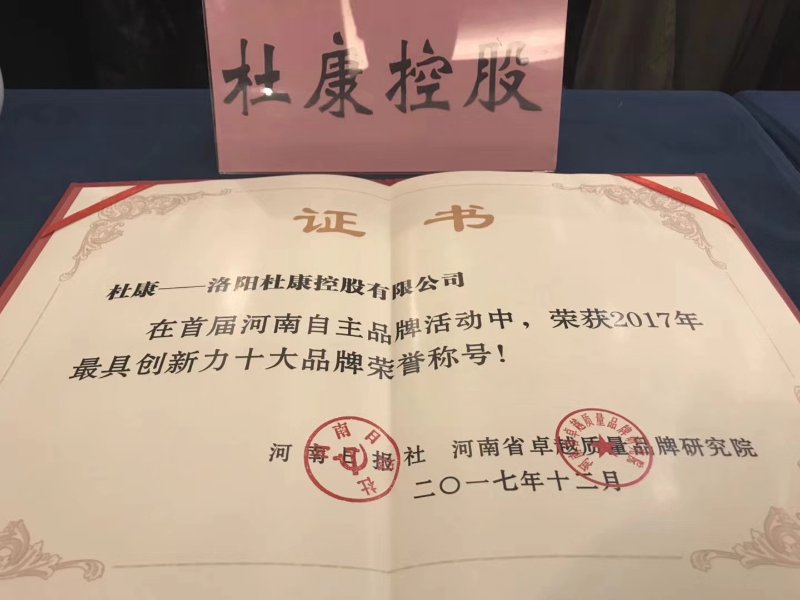 杜康控股
证书
杜康——洛阳杜康控股有限公司
在首届河南自主品牌活动中，荣获2017年
最具创新力十大品牌荣誉称号！
河南日报社 河南省卓越质量品牌研究院
二〇一七年十二月
河南日报社
河南省卓越质量品牌研究院